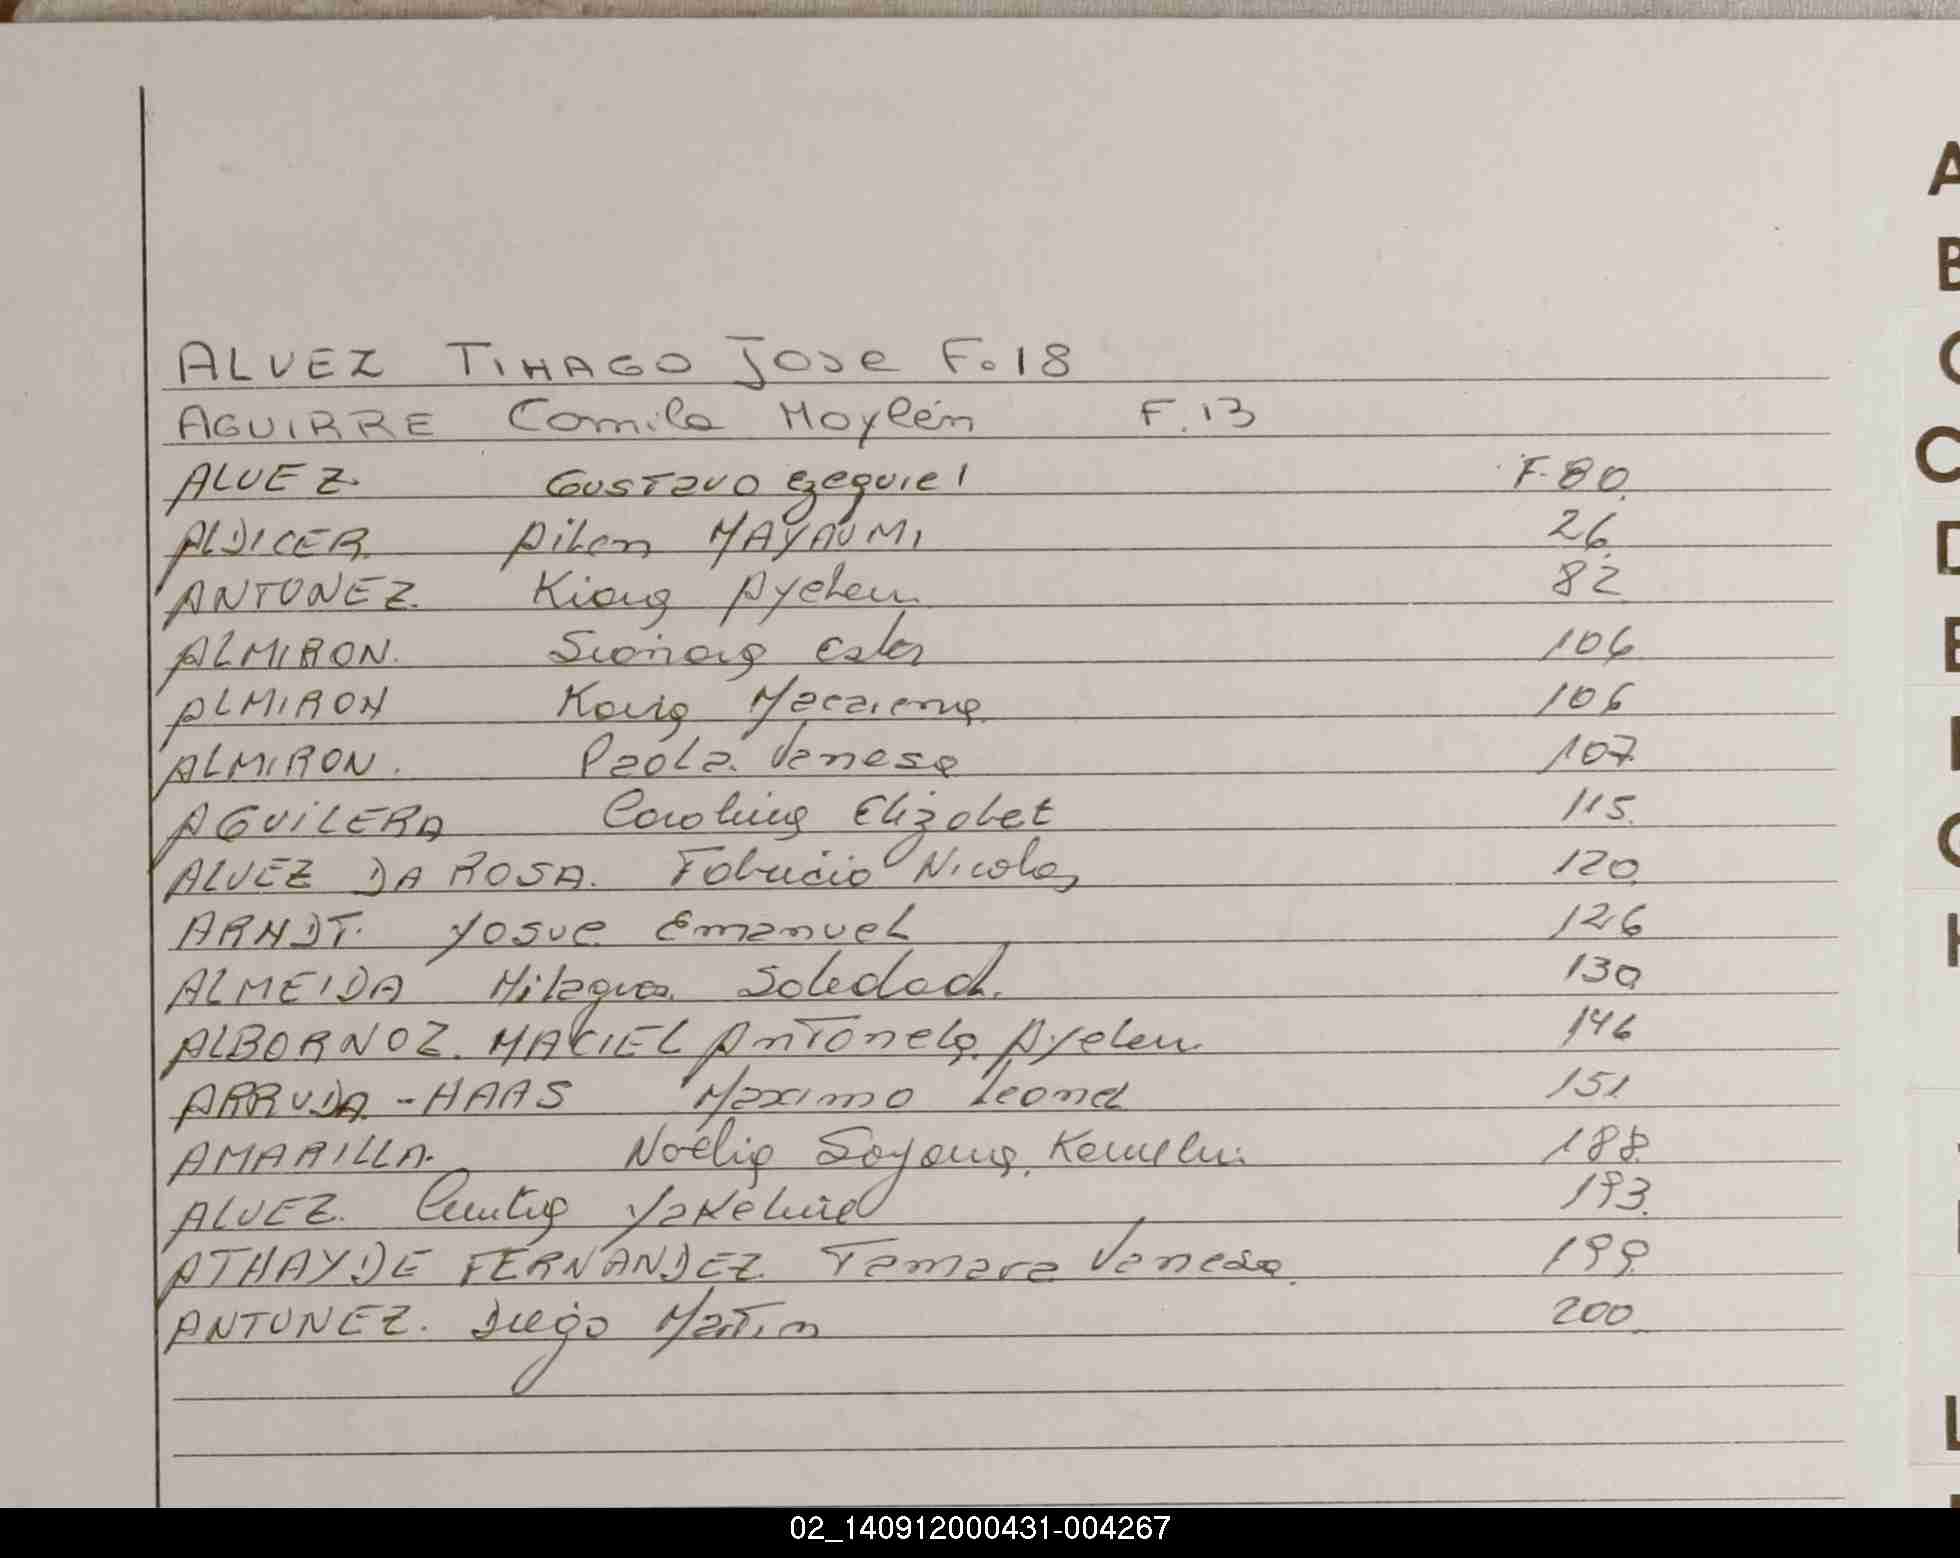 ALVEZ TIHAGO Jose F.18
AGUIRRE Camila Maylén F.13
ALVEZ. Gustavo Ezequiel F.80.
ALDICER. Ailen MAYAUMI 26.
ANTUNEZ. Kiara Ayelen. 82
ALMIRON. Ester 106
ALMIRON Karia Macarena. 106
ALMIRON. Paola. Vanesa 107
AGUILERA Carolina Elizabet 115.
ALVEZ DA ROSA. Fabricio Nicolas 120.
ARNDT. Yosue Emanuel 126
ALMEIDA Milagros. Soledad. 130
ALBORNOZ. MACIEL Antonela. Ayelen. 146
ARRUDA-HAAS Maximo Leonel 151
AMARILLA. Noelia Soyana. 188.
ALVEZ. Cintia Yakeline 193.
ATHAYDE FERNANDEZ Tamara Vanesa. 199.
ANTUNEZ. Diego Martin 200.
A
B
C
D
E
G
H
L
02_140912000431-004267